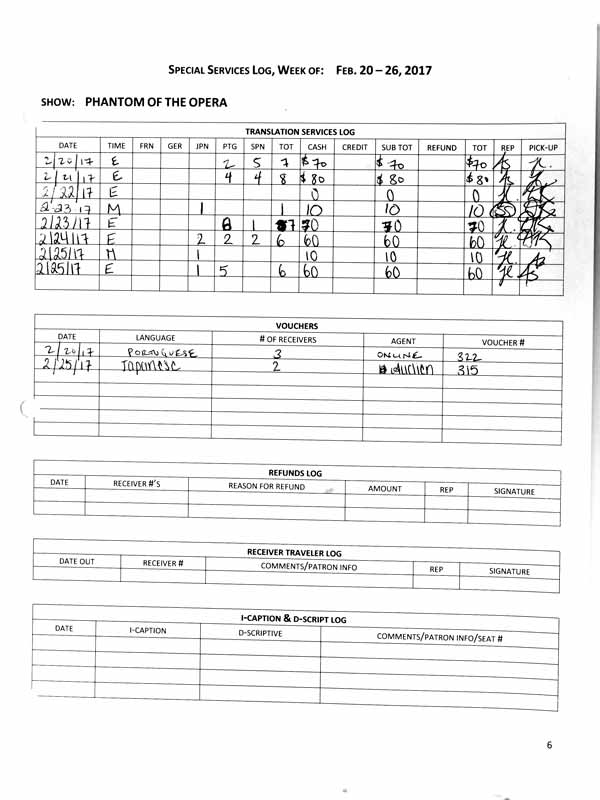 SPECIAL SERVICES LOG, WEEK OF: FEB. 20 – 26, 2017
SHOW: PHANTOM OF THE OPERA
TRANSLATION SERVICES LOG
DATE TIME FRN GER JPN PTG SPN TOT CASH CREDIT SUB TOT REFUND TOT REP PICK-UP
2/20/17 E 2 5 7 $70 $70 $70
2/21/17 E 4 4 8 $80 $80 $80
2/22/17 E 0 0 0
2-23 17 M 1 1 10 10 10
2/23/17 E 1 7 70 70 70
2/24/17 E 2 2 2 6 60 60 60
2/25/17 M 1 10 10 10
2/25/17 E 1 5 6 60 60 60
VOUCHERS
DATE LANGUAGE # OF RECEIVERS AGENT VOUCHER #
2/20/17 PORTUGUESE 3 ONLINE 322
2/25/17 Japanese 2 315
REFUNDS LOG
DATE RECEIVER #'S REASON FOR REFUND AMOUNT REP SIGNATURE
RECEIVER TRAVELER LOG
DATE OUT RECEIVER # COMMENTS/PATRON INFO REP SIGNATURE
I-CAPTION & D-SCRIPT LOG
DATE I-CAPTION D-SCRIPTIVE COMMENTS/PATRON INFO/SEAT #
6